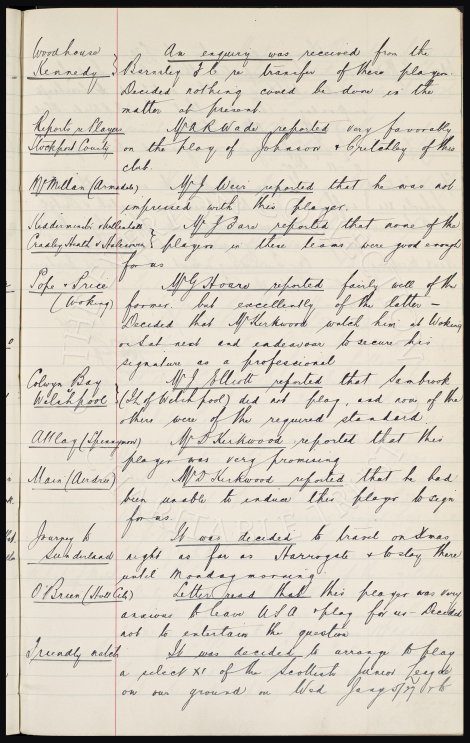 Woodhouse
Kennedy
An enquiry was received from the
Barnsley F.C. re transfer of these players.
Decided nothing could be done in the
matter at present.
Reports re Players
Stockport County
Mr A R Wade reported very favorably
on the play of Johnson & Critchley of this
club.
McMillan (Armadale)
Mr J Weir reported that he was not
impressed with this player.
Kidderminster & Willenhall
Cradley Heath & Halesowen
Mr J Bare reported that none of the
players in these teams were good enough
for us
Pope & Price
(Woking)
Mr G Hoare reported fairly well of the
former, but excellently of the latter —
Decided that Mr Kirkwood watch him at Woking
on Sat next and endeavour to secure his
signature as a professional
Colwyn Bay
Welshpool
Mr J Elliott reported that Sambrook
(I.L. of Welshpool) did not play, and none of the
others were of the required standard
(Spennymoor)
Mr D Kirkwood reported that this
player was very promising
Main (Airdrie)
Mr D Kirkwood reported that he had
been unable to induce this player to sign
for us.
Journey to
Sunderland
It was decided to travel on Xmas
night as far as Harrogate & to stay there
until Monday morning
O'Brien (Hull City)
Letter read that this player was very
anxious to leave U.S.A. & play for us — Decided
not to entertain the question
Friendly match
It was decided to arrange to play
a select XI of the Scottish Junior League
on our ground on Wed Jany 5/27